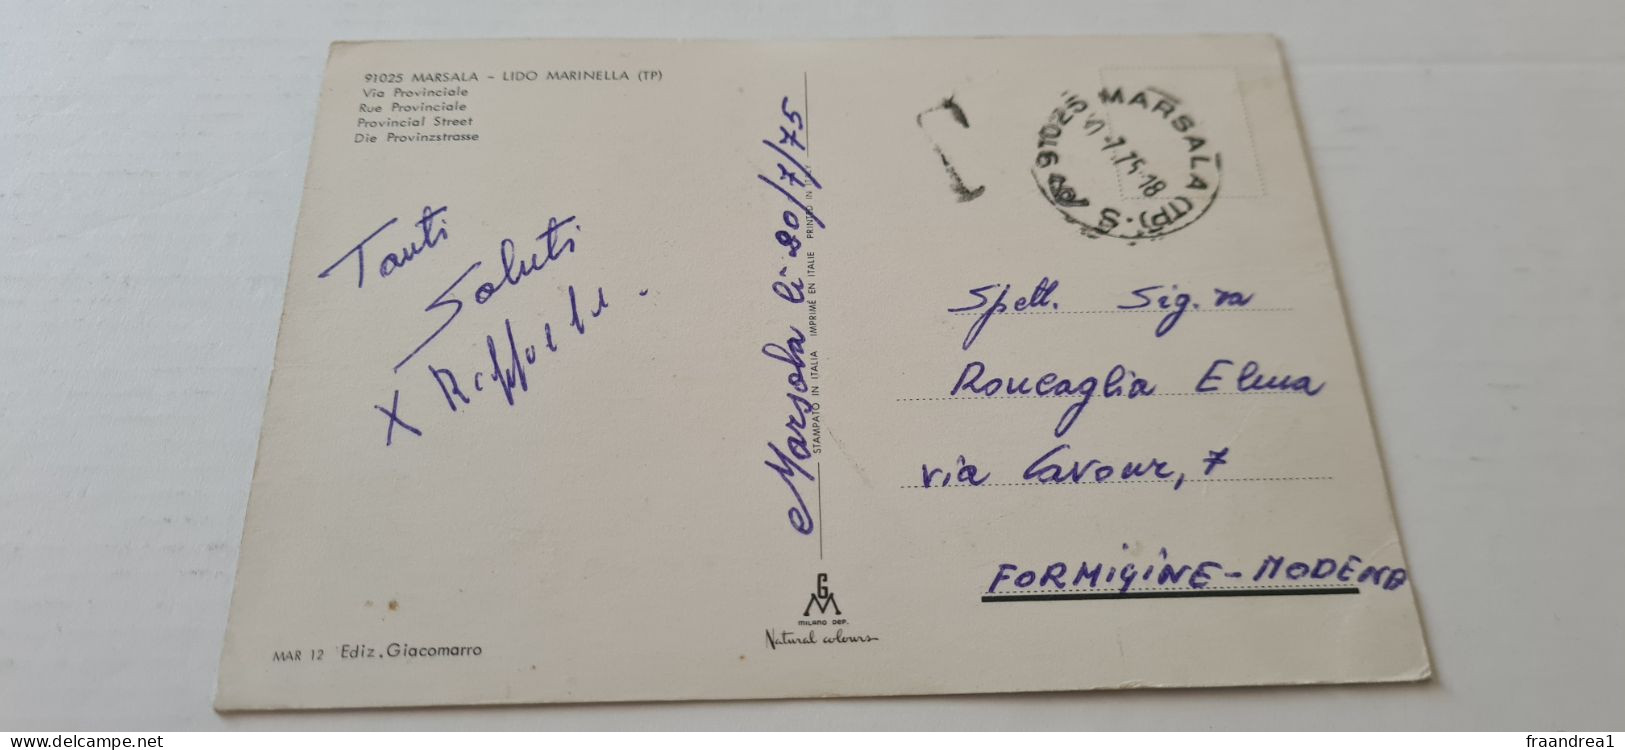 91025 MARSALA - LIDO MARINELLA (TP)
Via Provinciale
Rue Provinciale
Provincial Street
Die Provinzstrasse
Tanti
Saluti
X
MAR 12 Ediz. Giacomarro
Marsala lì 20/7/75
STAMPATO IN ITALIA IMPRIMÉ EN ITALIE PRINTED IN ITALY
GM
MILANO DEP.
Natural colours
91025 MARSALA (TP)
7.75-18
Spett. Sig.ra
Roncaglia Elma
via Cavour, 7
FORMIGINE - MODENA
www.delcampe.net
fraandrea1